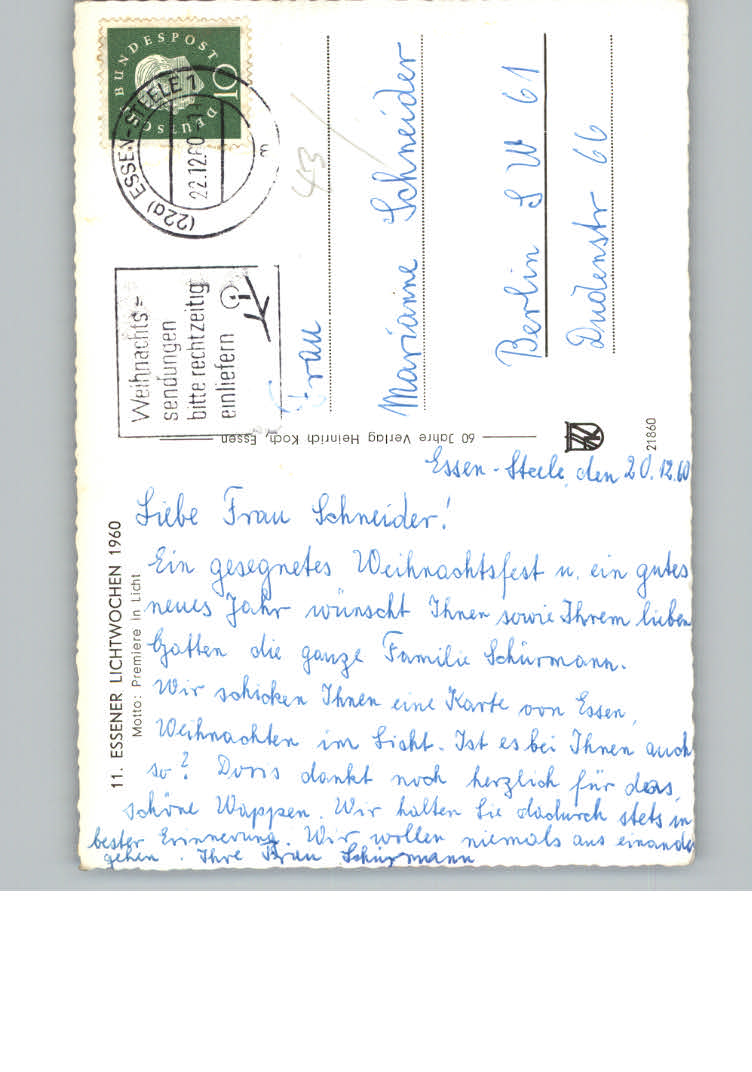 DEUTSCHE BUNDESPOST
10
(22a) ESSEN-STEELE 1
22.12.60
m
Weihnachts=
sendungen
bitte rechtzeitig
einliefern
43
Frau
Marianne Schneider
Berlin SW 61
Dudenstr 66
60 Jahre Verlag Heinrich Koch, Essen
21860
11. ESSENER LICHTWOCHEN 1960
Motto: Premiere in Licht
Essen-Steele, den 20.12.60
Liebe Frau Schneider!
Ein gesegnetes Weihnachtsfest u. ein gutes
neues Jahr wünscht Ihnen sowie Ihrem lieben
Gatten die ganze Familie Schürmann.
Wir schicken Ihnen eine Karte von Essen,
Weihnachten im Licht. Ist es bei Ihnen auch
so? Doris dankt noch herzlich für das
schöne Wappen. Wir halten Sie dadurch stets in
bester Erinnerung. Wir wollen niemals aus einander
gehen. Ihre Frau Schürmann